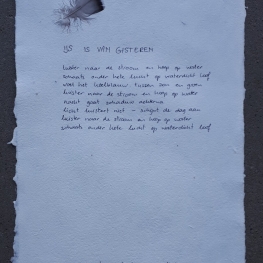 IJS IS VAN GISTEREN
luister naar de stroom en hoop op water
schaats onder hele lucht op waterdicht leef
was het ijzelblauw tussen aan en geen
luister naar de stroom en hoop op water
nacht gaat geluidloos
licht luistert niet – schijnt de dag aan
luister naar de stroom en hoop op water
schaats onder hele lucht op waterdicht leef